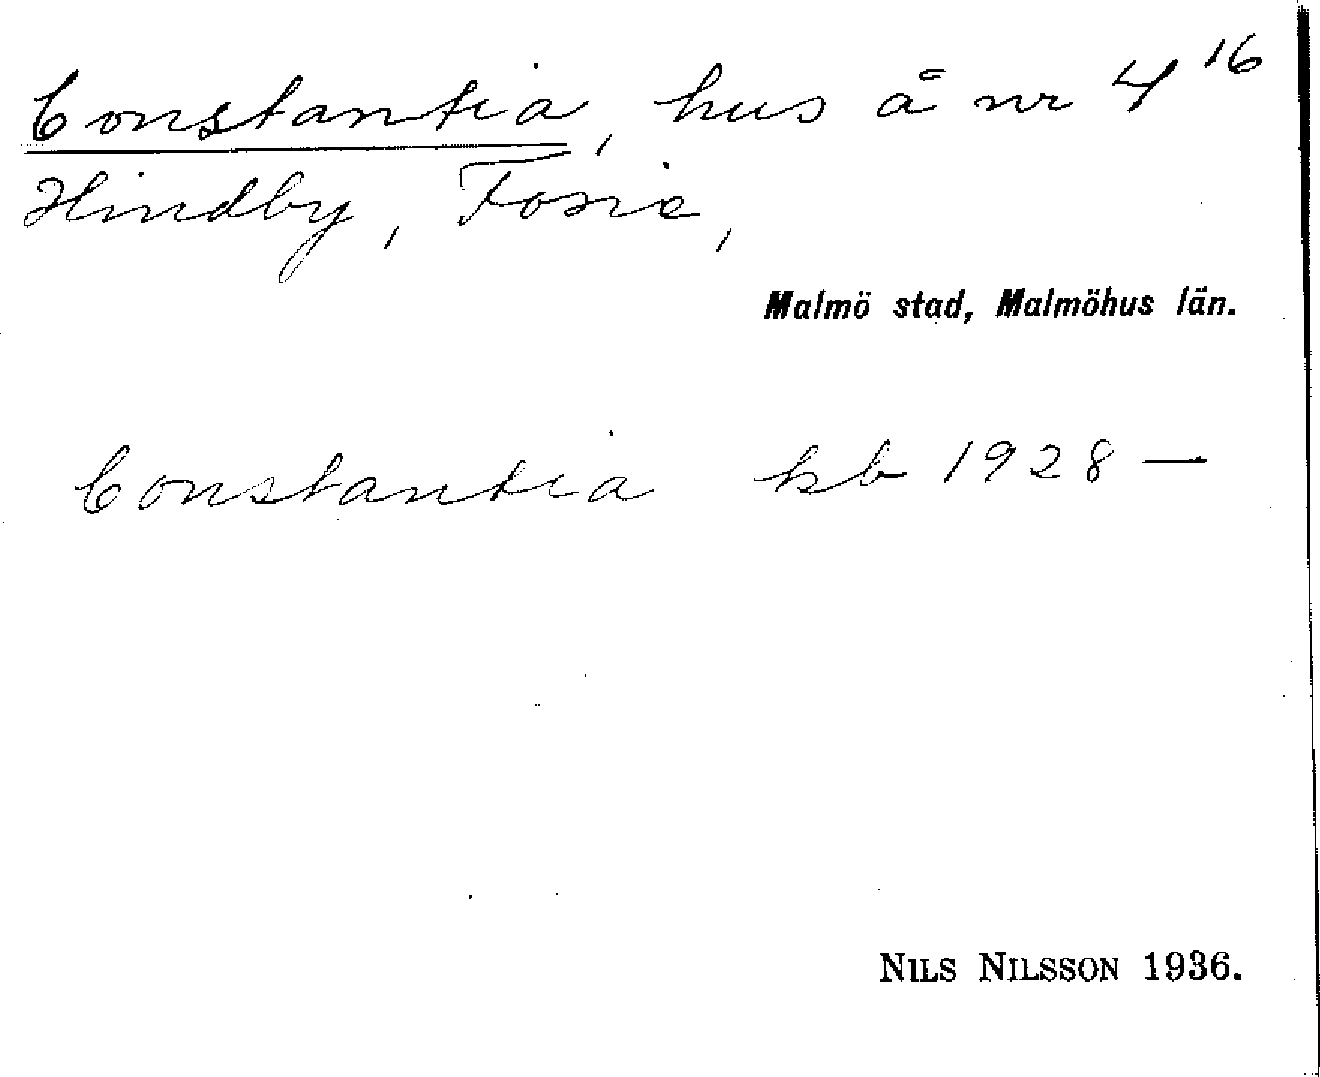 Constantia, hus å nr 4¹⁶
Hindby, Fosie,
Malmö stad, Malmöhus län.
Constantia kb 1928 —
NILS NILSSON 1936.